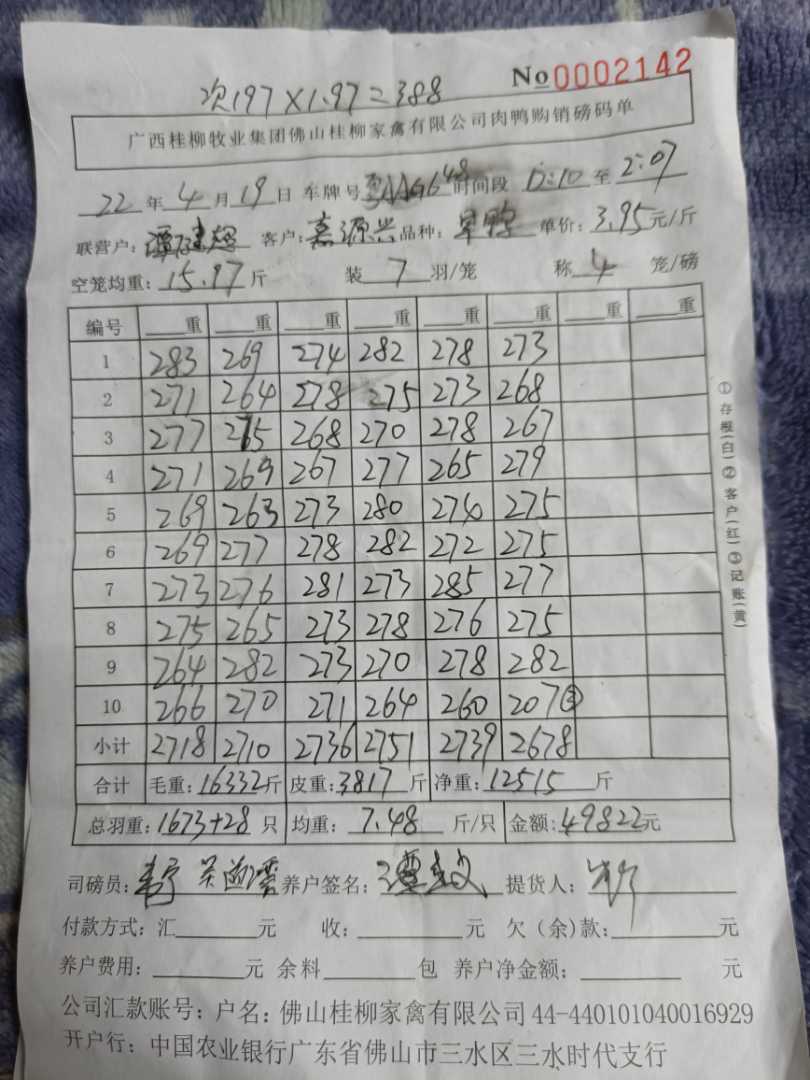 No 0002142
次197×1.97=388
广西桂柳牧业集团佛山桂柳家禽有限公司肉鸭购销磅码单
22年4月19日 车牌号 AAG648 时间段 12:10 至 2:07
联营户: 客户:嘉源兴 品种: 单价:3.95元/斤
空笼均重:15.97斤 装7羽/笼 称4笼/磅
编号 重 重 重 重 重 重 重 重
1 283 269 274 282 278 273
2 271 264 278 275 273 268
3 277 265 268 270 278 267
4 271 269 267 277 265 279
5 269 263 273 280 274 275
6 269 277 278 282 272 275
7 273 276 281 273 285 277
8 275 265 273 278 276 275
9 264 282 273 270 278 282
10 266 270 271 264 260 207③
小计 2718 2710 2736 2751 2739 2678
合计 毛重:16332斤 皮重:3817斤 净重:12515斤
总羽重:1673+28只 均重:7.48斤/只 金额:49822元
司磅员: 养户签名: 提货人:
付款方式:汇 元 收: 元 欠(余)款: 元
养户费用: 元 余料 包 养户净金额: 元
公司汇款账号:户名:佛山桂柳家禽有限公司44-440101040016929
开户行:中国农业银行广东省佛山市三水区三水时代支行
①存根(白)②客户(红)③记账(黄)